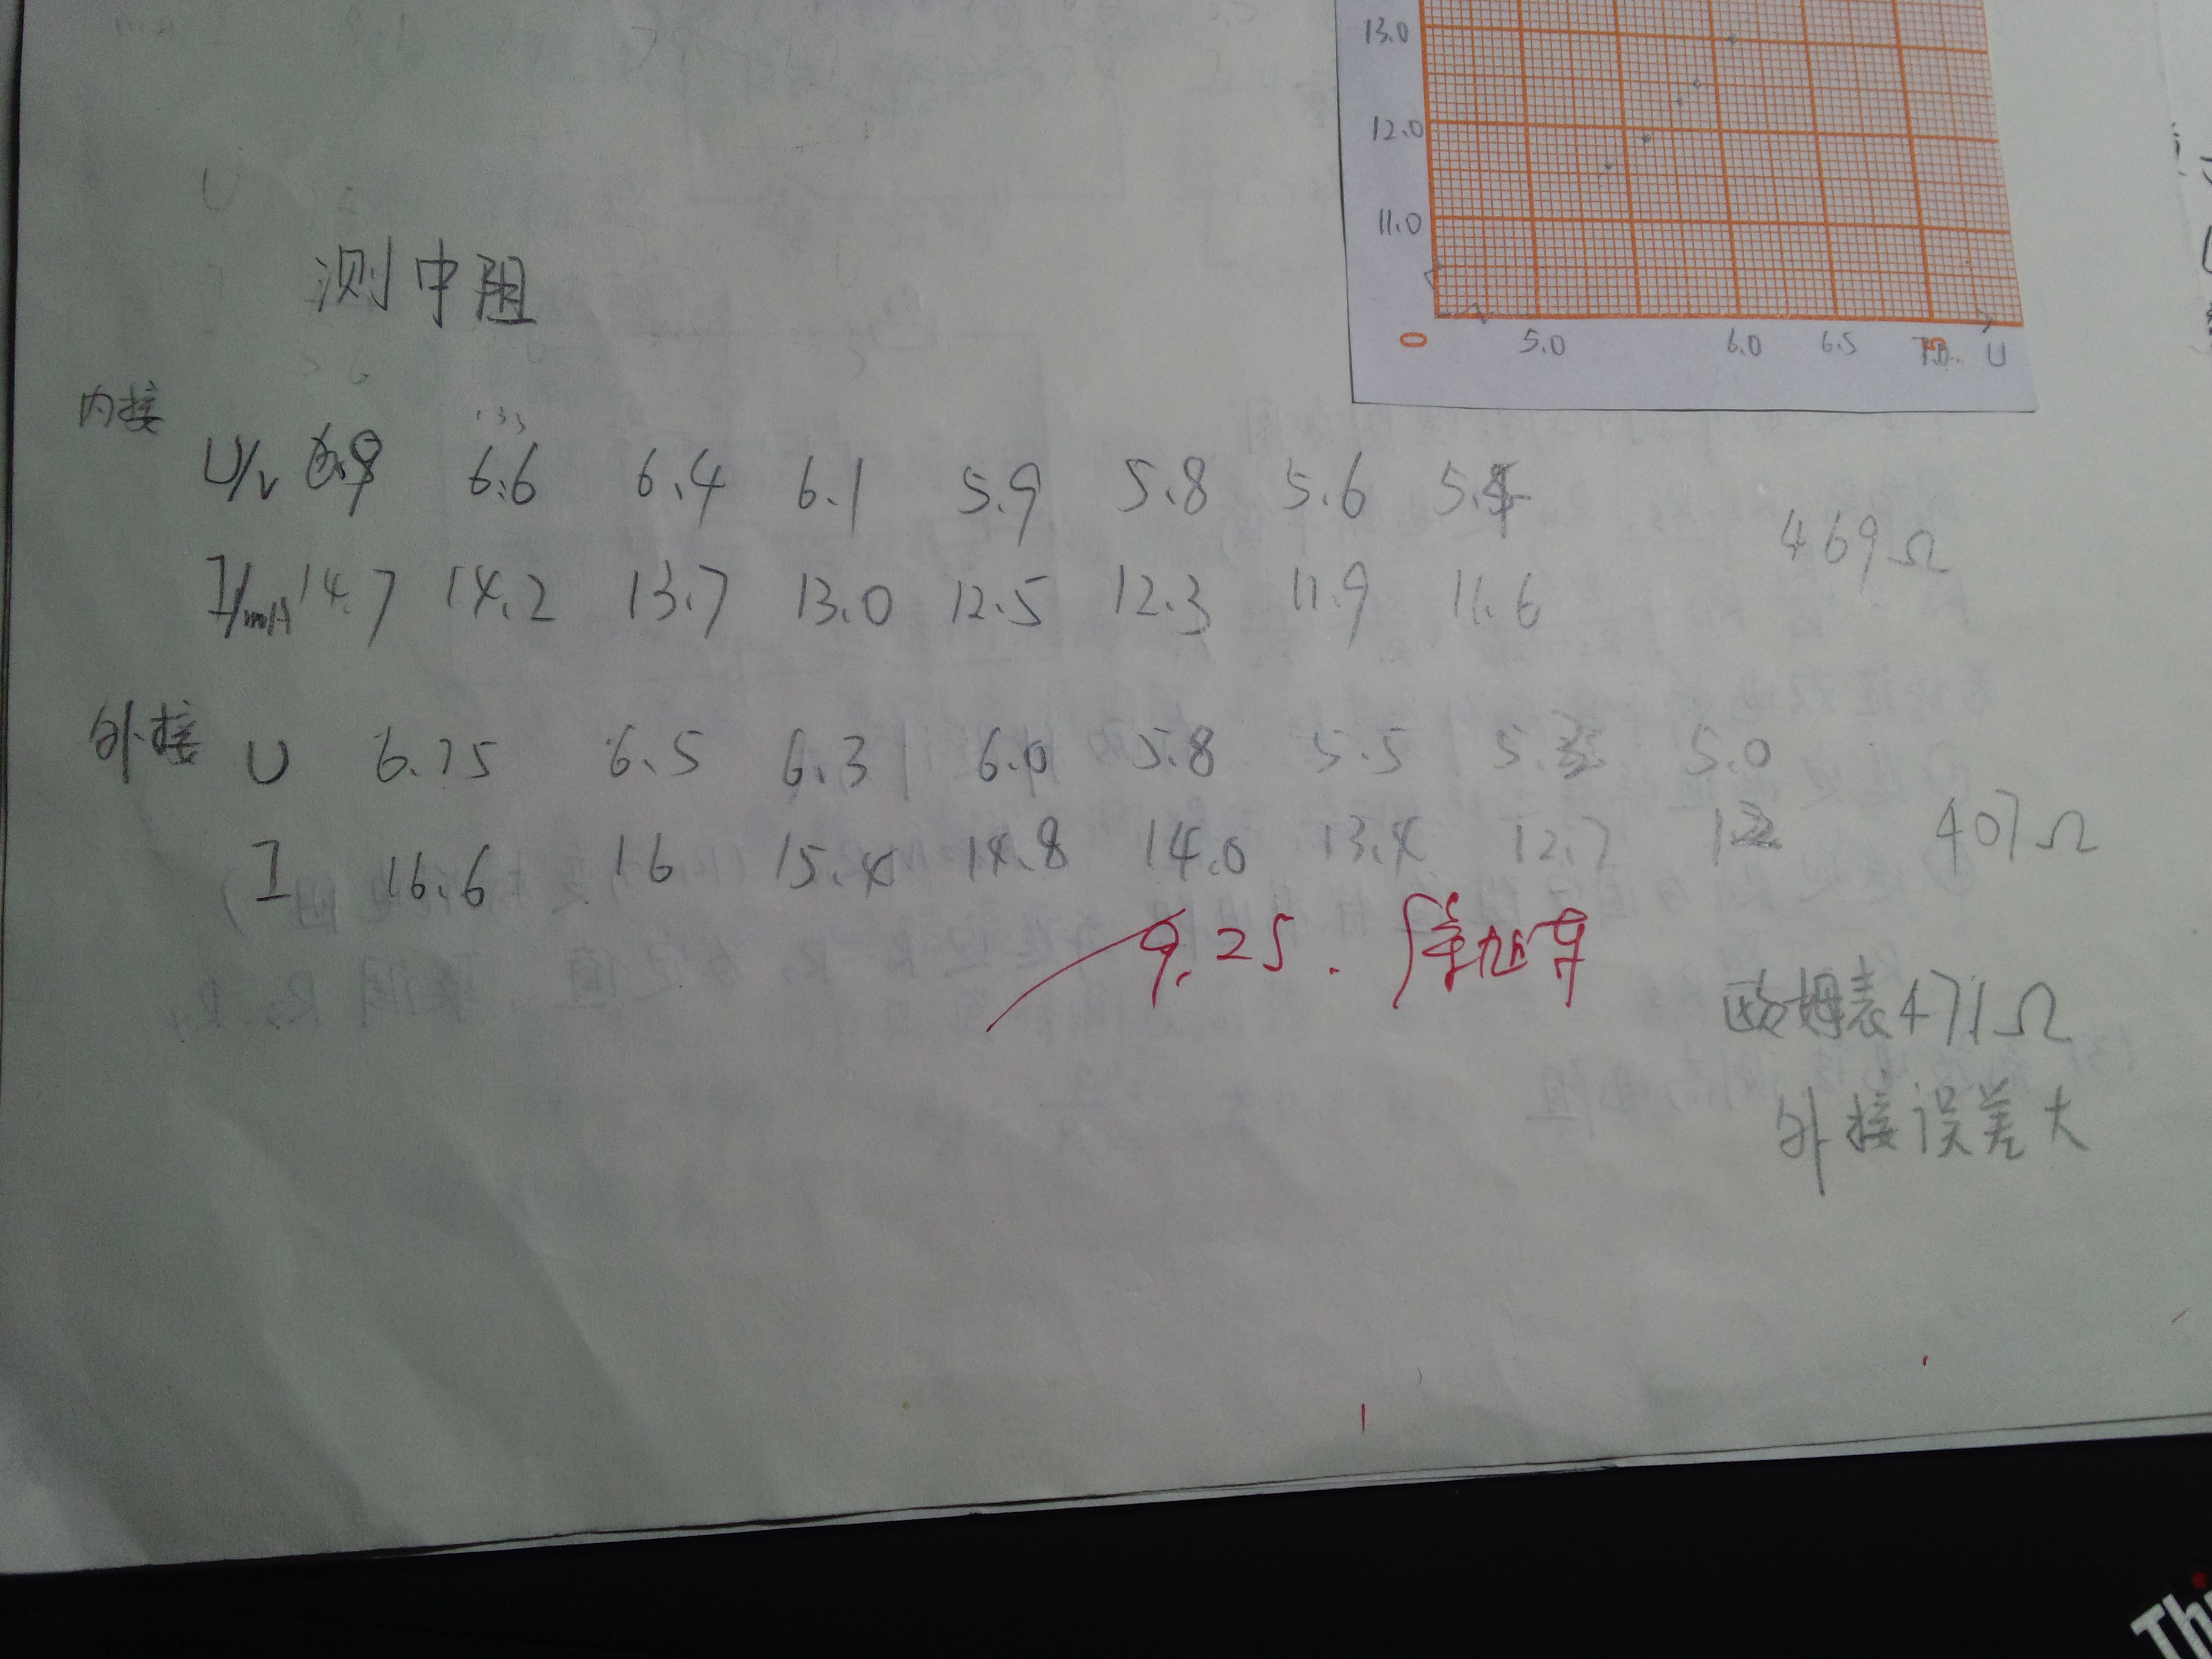 13.0
12.0
11.0
0 5.0 6.0 6.5 7.0 U
测中阻
内接
U/v 6.9 6.6 6.4 6.1 5.9 5.8 5.6 5.4
I/mA 14.7 14.2 13.7 13.0 12.5 12.3 11.9 11.6
469Ω
外接
U 6.75 6.5 6.3 6.0 5.8 5.5 5.3 5.0
I 16.6 16 15.4 14.8 14.0 13.4 12.7 12
407Ω
9.25.
欧姆表471Ω
外接误差大
Thi